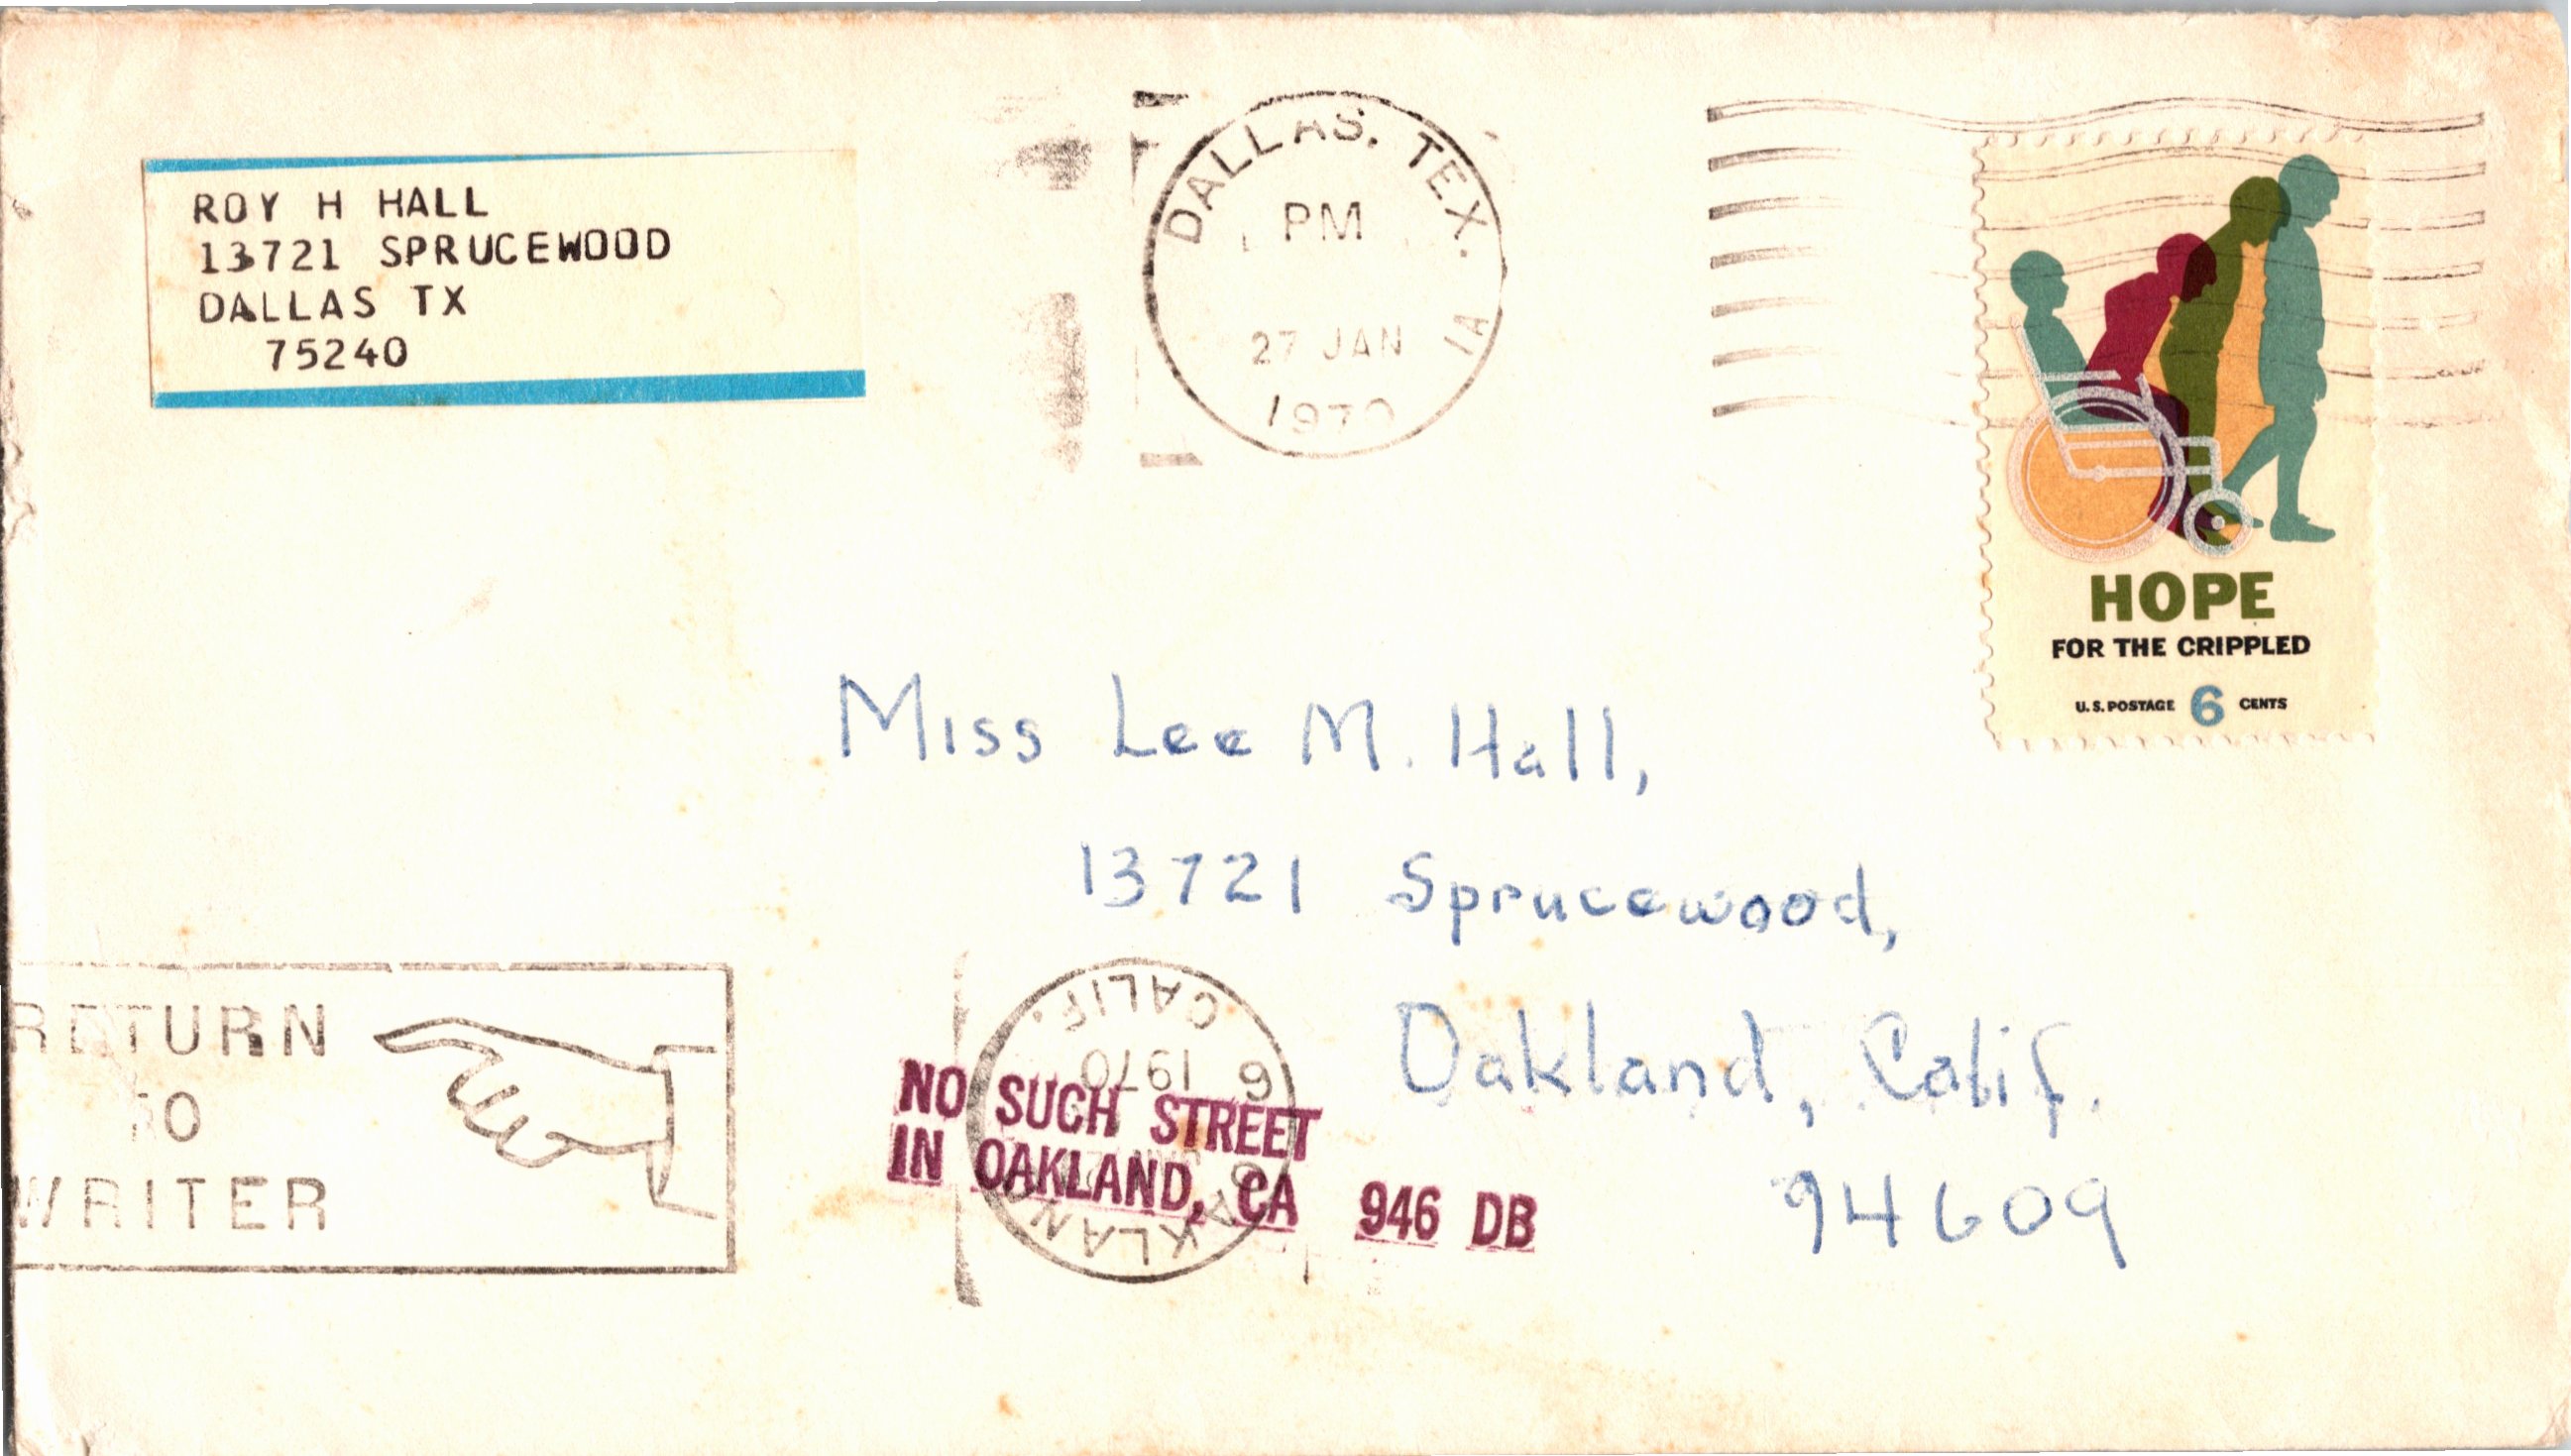 ROY H HALL
13721 SPRUCEWOOD
DALLAS TX
75240
DALLAS, TEX.
PM
27 JAN 1A
1970
HOPE
FOR THE CRIPPLED
U.S. POSTAGE 6 CENTS
Miss Lee M. Hall,
13721 Sprucewood,
Oakland, Calif.
94609
RETURN
TO
WRITER
CALIF.
1970
OAKLAND
NO SUCH STREET
IN OAKLAND, CA 946 DB